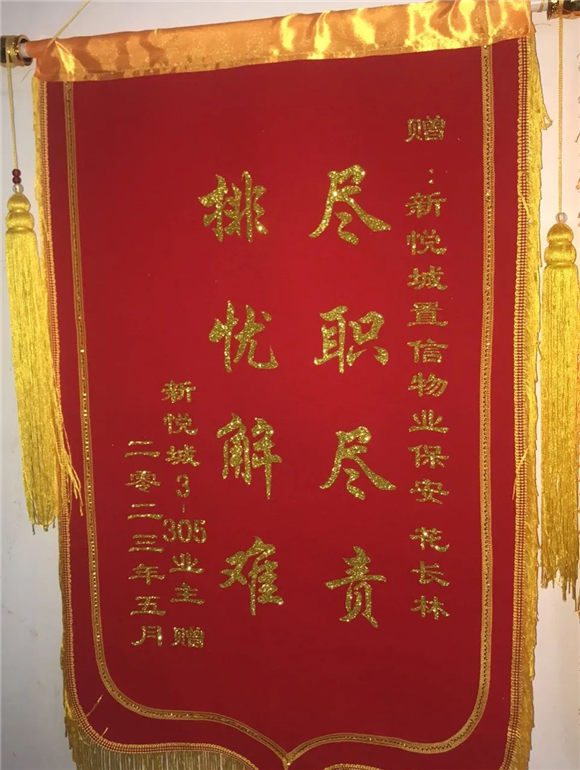 赠：新悦城置信物业保安 花长林
尽职尽责
排忧解难
新悦城3-305业主 赠
二零二三年五月